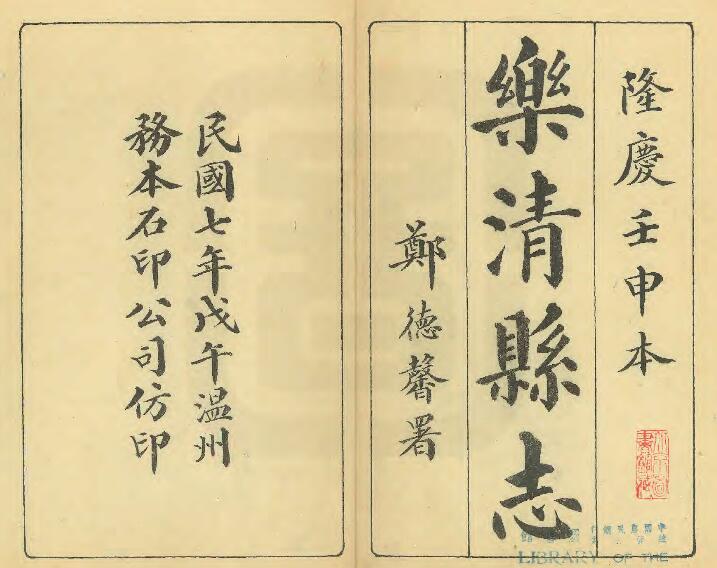 隆慶壬申本
樂清縣志
鄭德馨署
民國七年戊午溫州
務本石印公司仿印
LIBRARY OF THE